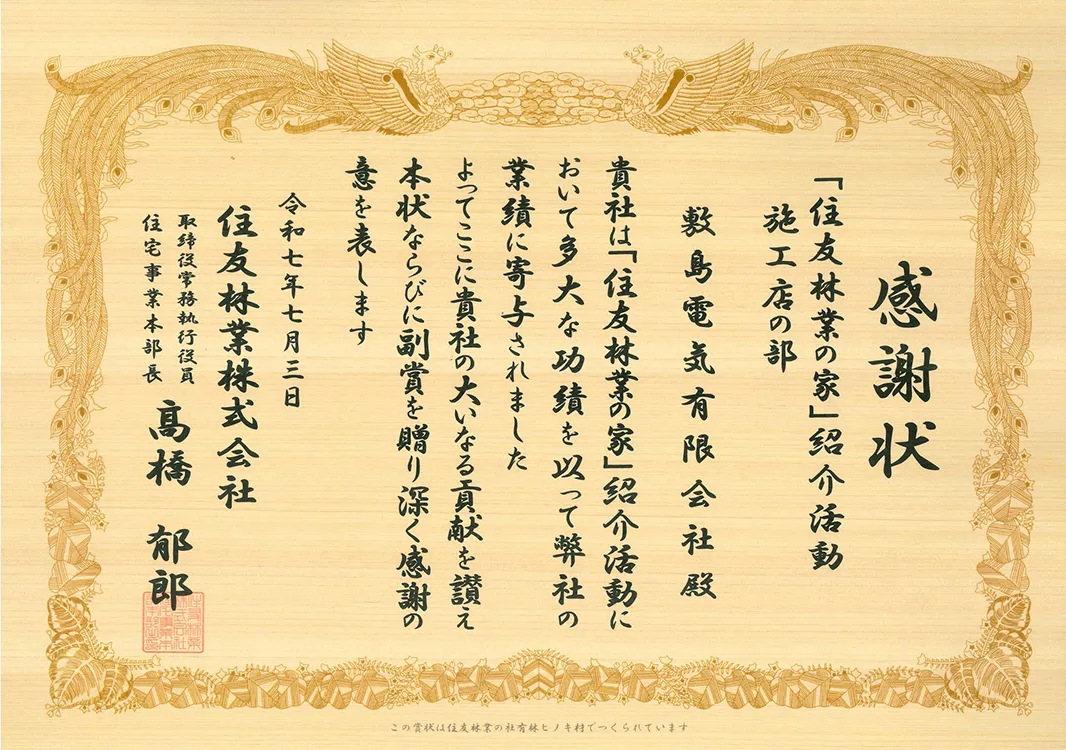 感謝状
「住友林業の家」紹介活動
施工店の部
敷島電気有限会社殿
貴社は「住友林業の家」紹介活動に
おいて多大な功績を以って弊社の
業績に寄与されました
よってここに貴社の大いなる貢献を讃え
本状ならびに副賞を贈り深く感謝の
意を表します
令和七年七月三日
住友林業株式会社
取締役常務執行役員
住宅事業本部長
髙橋 郁郎
この賞状は住友林業の社有林ヒノキ材でつくられています